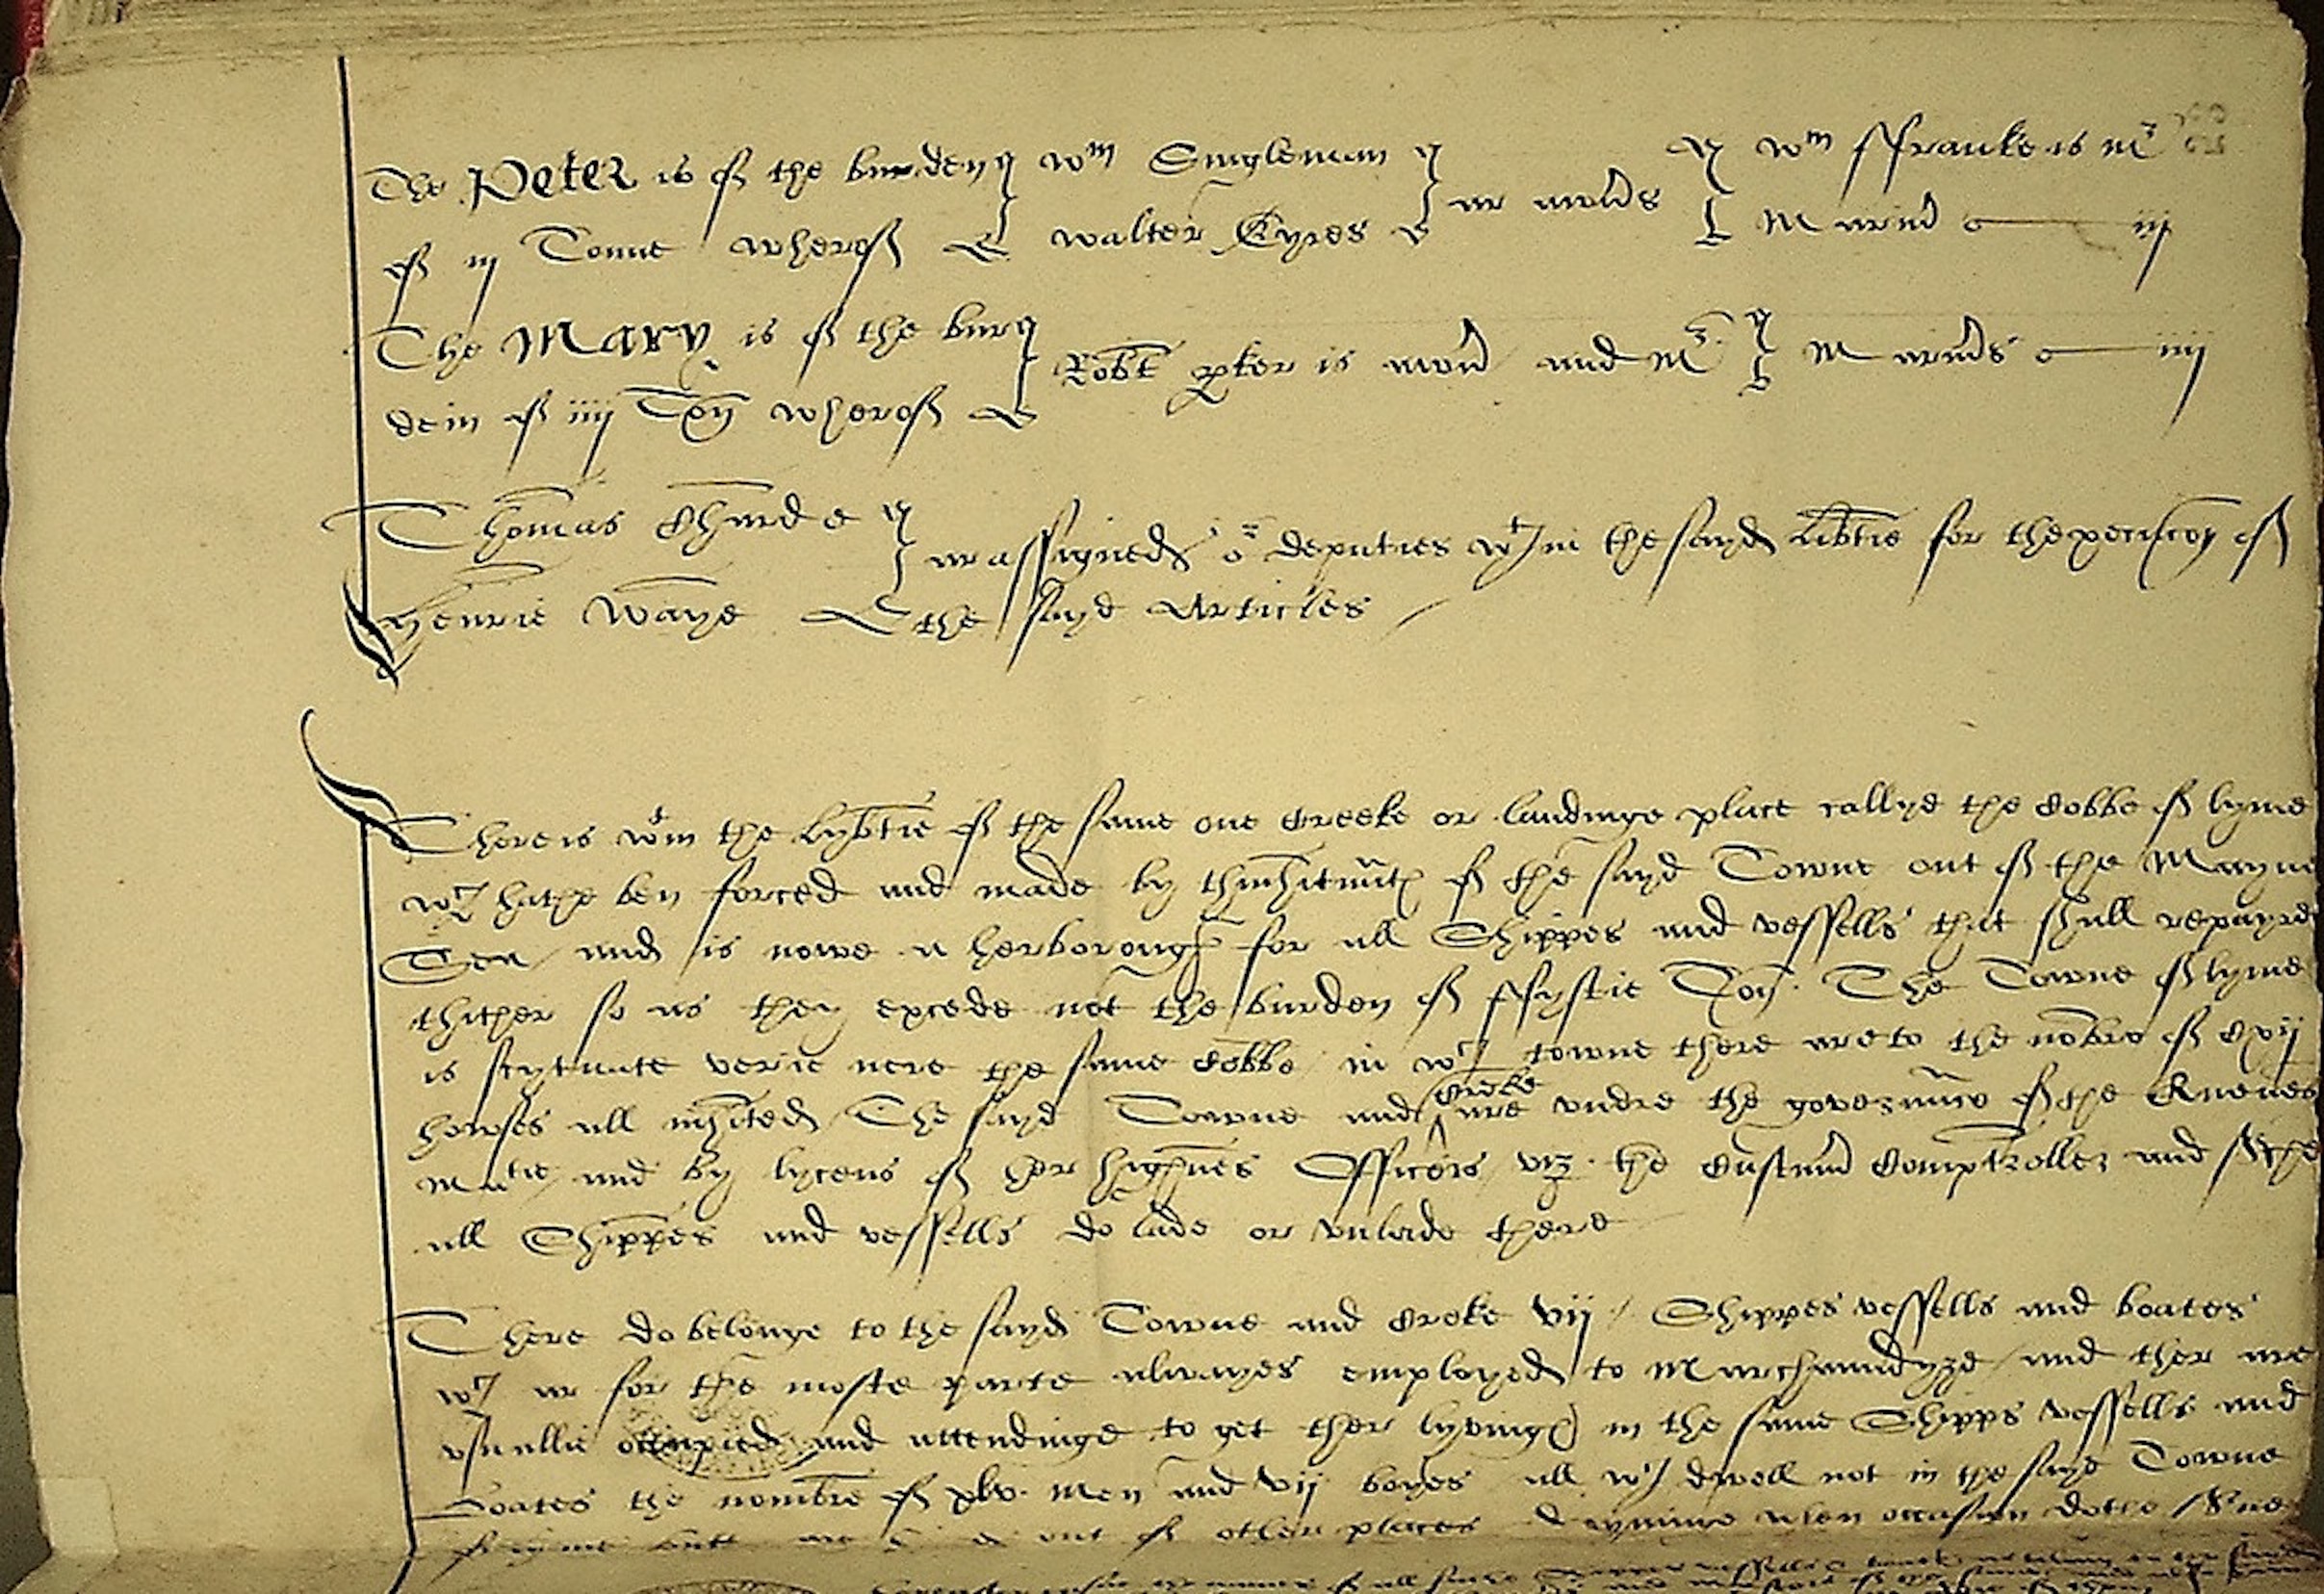 The Peter is of the burden wm Singleman ar own̄ds wm ffranke is mr
of iij Tonne wherof walter Eyres Marin̄d iij
The Mary is of the bur
dein of iiij Ton̄ wherof Rob̄t pker is own̄d and Mr Marin̄ds iiij
Thomas Churde
ar assigned or deputies wtin the sayd lib̄tie for thexecuc̄on of
Henrie Waye the sayd Articles
There is wtin the lyb̄tie of the same one Creeke or landinge place callyd the Cobbe of lyme
wch hathe ben forced and made by thinhitan̄tes of the sayd Towne out of the Mayne
Sea and is nowe a herborough for all Shippes and vessells that shall repayre
thither so as they excede not the burden of ffystie Ton̄. The Towne of lyme
is scytuate verie nere the same Cobbe in wch towne there are to the nōbre of Cxvij
howses all inhited The sayd Towne and Creke are undre the govern̄ce of the Quenes
Matie and by lycens of her highnes Officers viz. the Custum̄ Comptroller and
all Shippes and vessells do lade or unlade there
There do belonge to the sayd Towne and Creke vij Shippes vessells and boates
wch ar for the moste parte alwayes employed to Marchaundyze and ther are
usuallie occupied and attendinge to get ther lyvinges in the same Shipps vessells and
Boates the nombre of xlv. Men and vij boyes all wch dwell not in the sayd Towne
of lyme but out of other places when occasion dothe